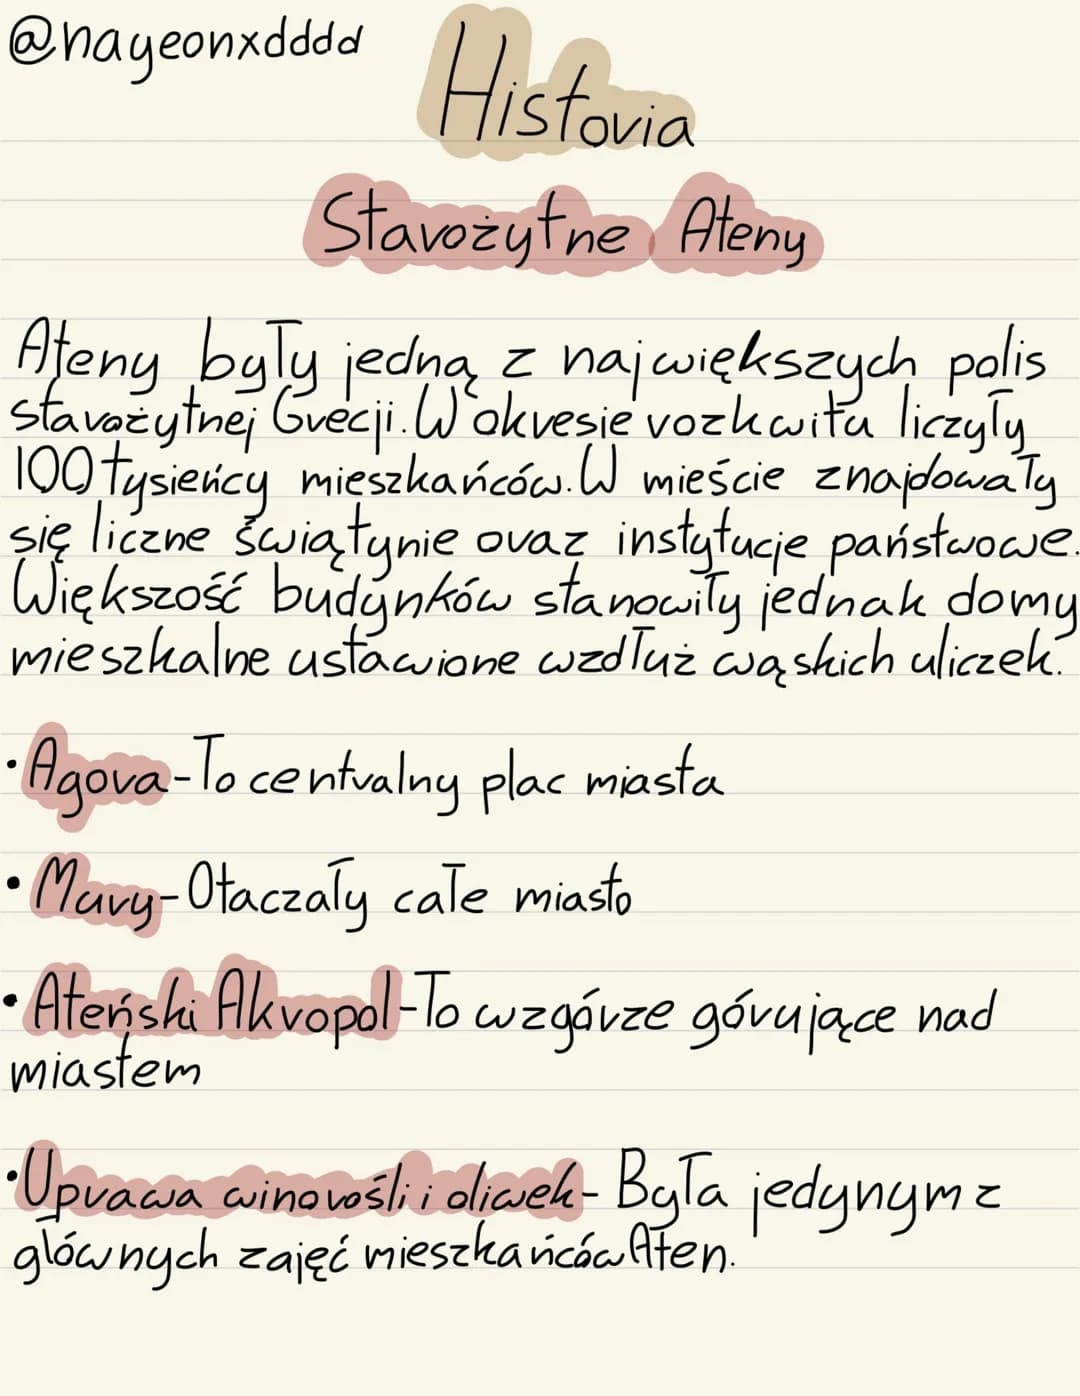 @nayeonxdddd
Historia
Starożytne Ateny
Ateny były jedną z największych polis
starożytnej Grecji. W okresie rozkwitu liczyły
100 tysieńcy mieszkańców. W mieście znajdowały
się liczne świątynie oraz instytucje państwowe.
Większość budynków stanowiły jednak domy
mieszkalne ustawione wzdłuż wąskich uliczek.
•Agora-To centralny plac miasta
•Mury-Otaczały całe miasto
•Ateński Akropol-To wzgórze górujące nad
miastem
•Uprawa winorośli i oliwek- Była jedynym z
głównych zajęć mieszkańców Aten.